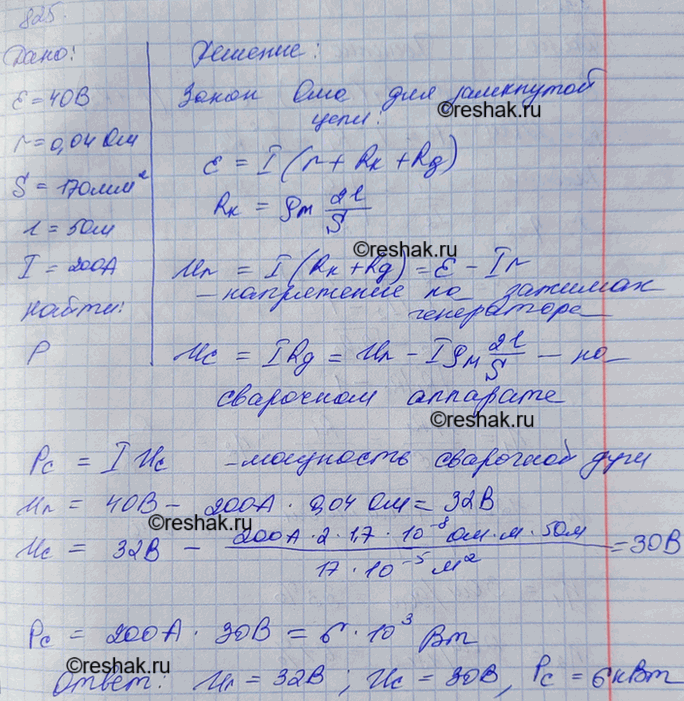 825
Дано:
ε = 40В
r = 0,04 Ом
S = 170мм²
l = 50м
I = 200А
Найти:
P
Решение:
Закон Ома для замкнутой
цепи:
©reshak.ru
ε = I (r + Rк + Rд)
Rк = ρм 2l/S
©reshak.ru
Uг = I (Rк + Rд) = ε - Ir
- напряжение на зажимах
генератора
Uс = IRд = Uг - Iρм 2l/S - на
сварочном аппарате
©reshak.ru
Pс = I Uс - мощность сварочной дуги
Uг = 40В - 200А · 0,04 Ом = 32В
©reshak.ru
Uс = 32В - 200А · 2 · 1,7 · 10⁻⁸ Ом · м · 50м / 17 · 10⁻⁵ м² = 30В
Pс = 200А · 30В = 6 · 10³ Вт
©reshak.ru
Ответ: Uг = 32В ; Uс = 30В, Pс = 6кВт